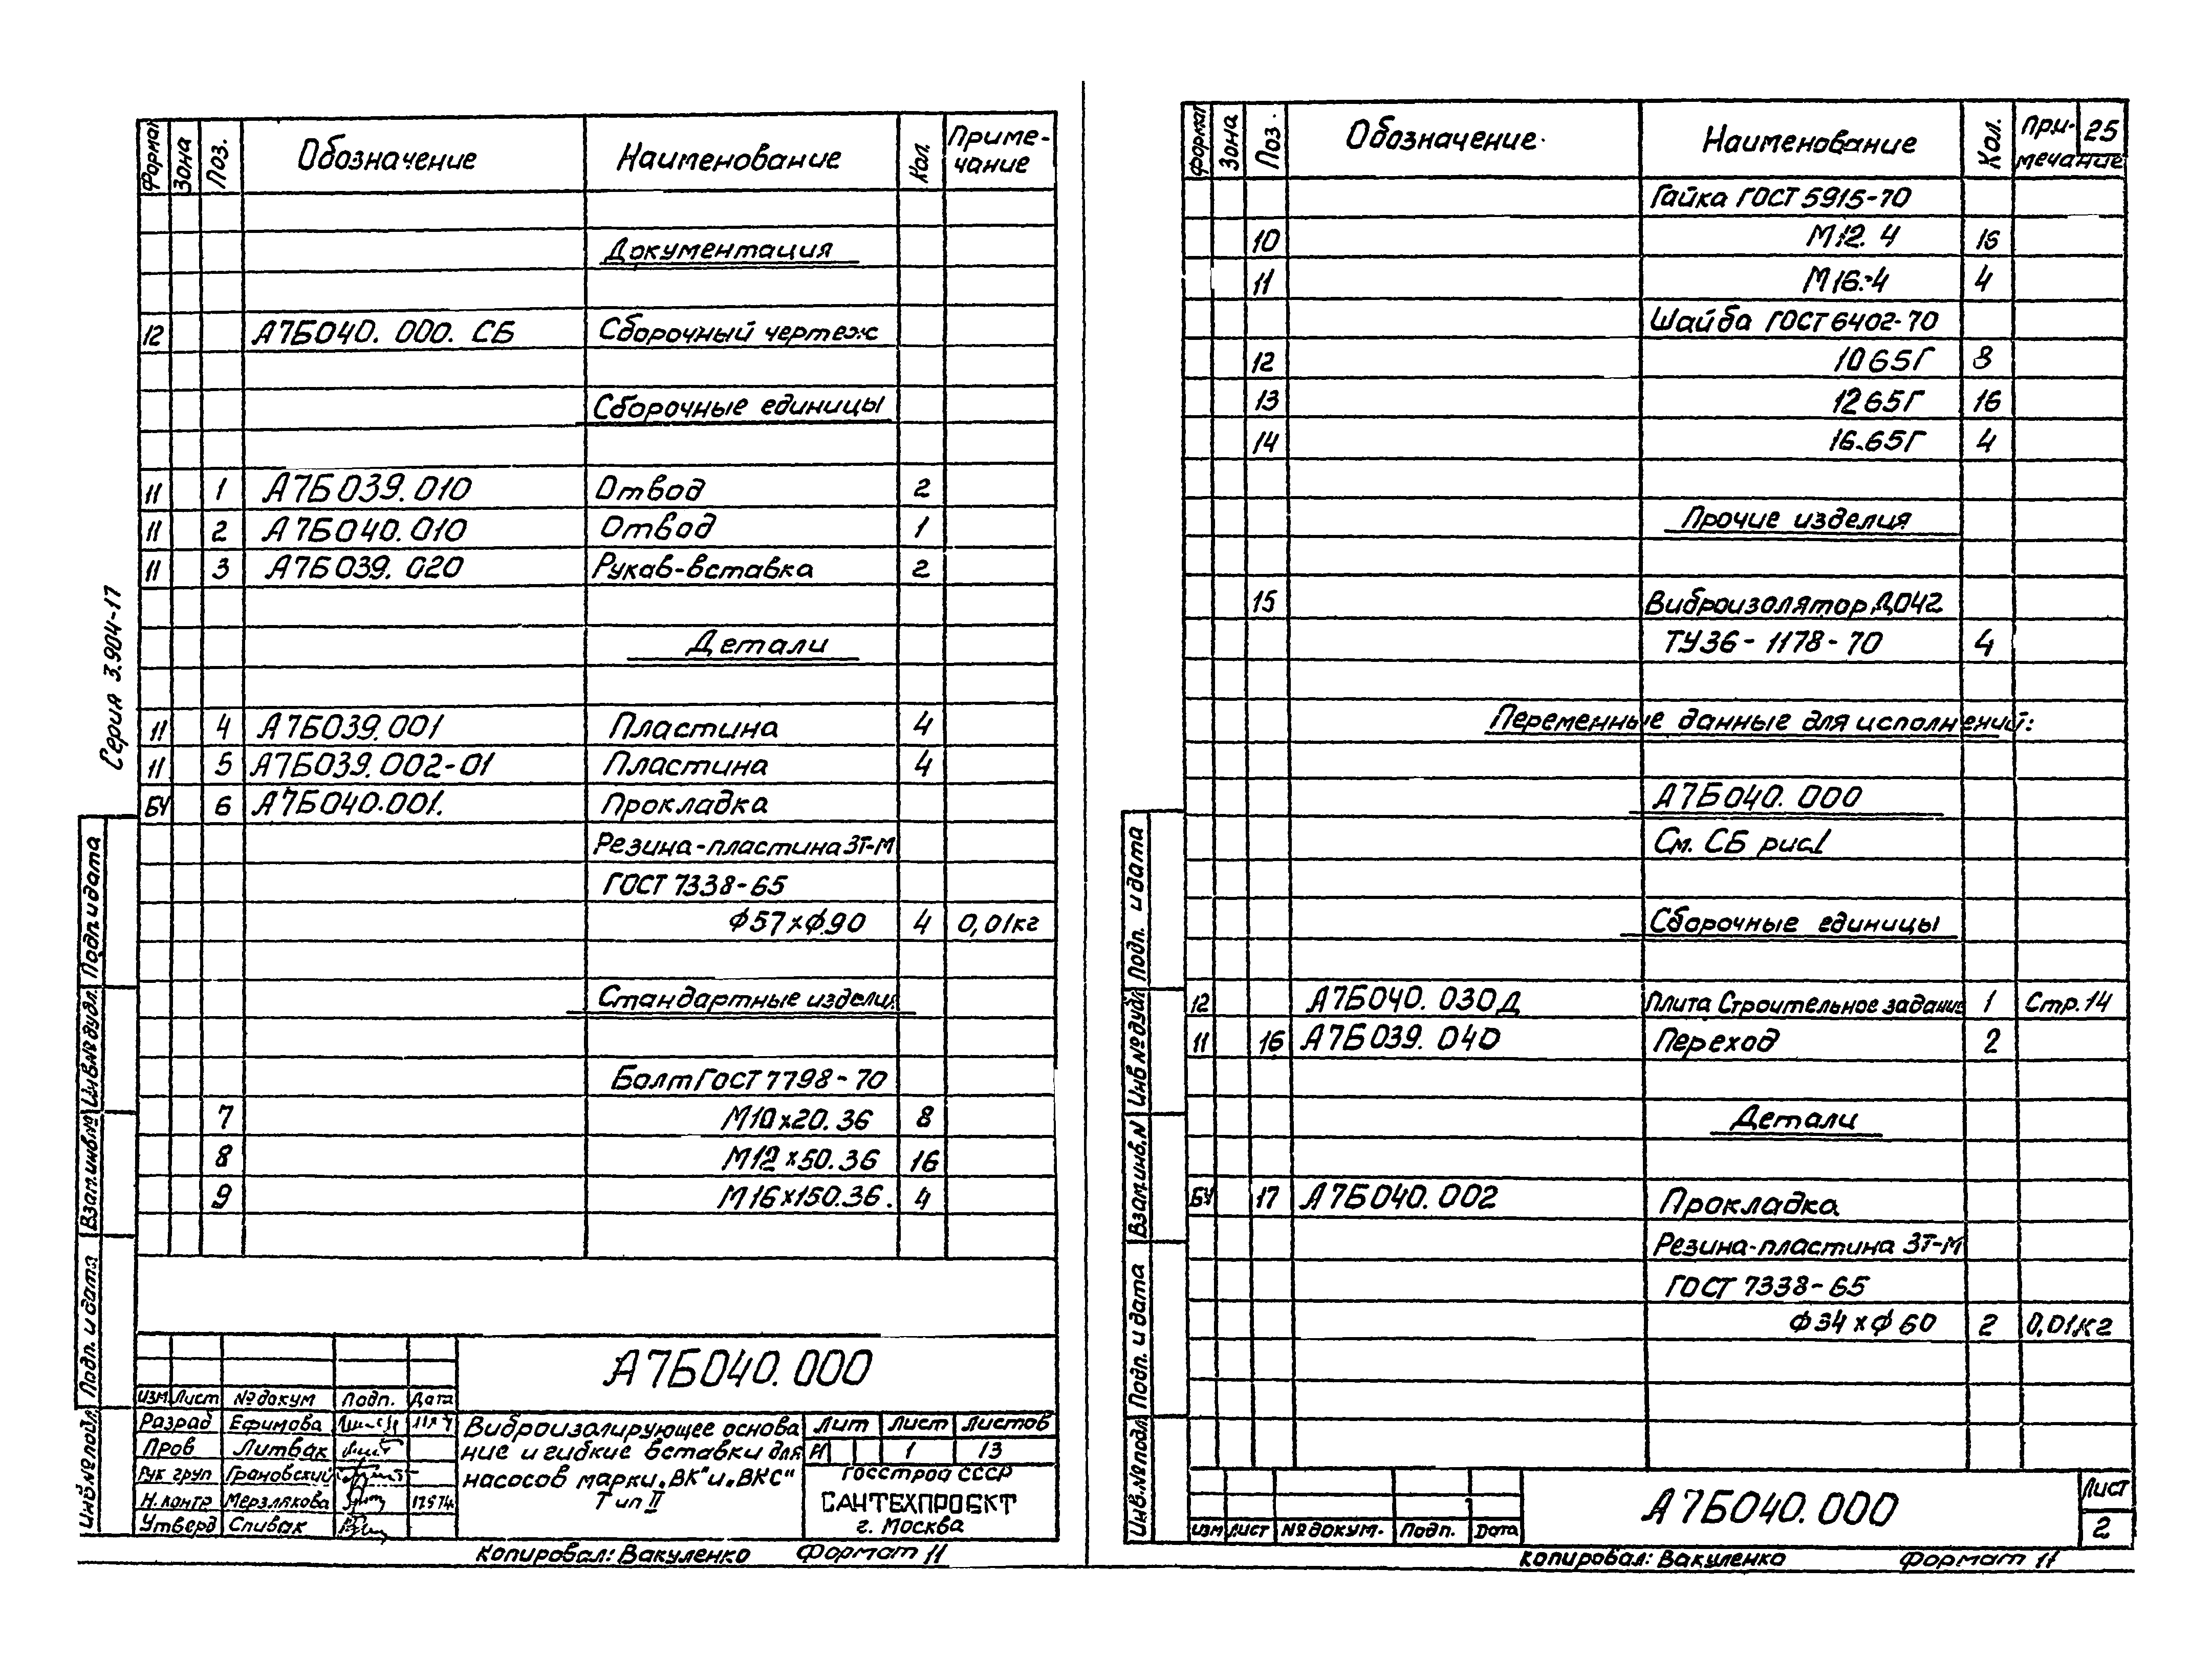 Серия 3.904-17
Формат Зона Поз. Обозначение Наименование Кол. Приме-
чание
Документация
12 А7Б040. 000. СБ Сборочный чертеж
Сборочные единицы
11 1 А7Б039.010 Отвод 2
11 2 А7Б040.010 Отвод 1
11 3 А7Б039. 020 Рукав-вставка 2
Детали
11 4 А7Б039.001 Пластина 4
11 5 А7Б039.002-01 Пластина 4
БЧ 6 А7Б040.001. Прокладка
Резина-пластина 3Т-М
ГОСТ 7338-65
ф57хф90 4 0,01кг
Стандартные изделия
Болт ГОСТ 7798-70
7 М10х20.36 8
8 М12х50.36 16
9 М16х150.36. 4
Подп. и дата
Инв.№ дубл.
Взам.инв.№
Подп. и дата
Инв.№ подл.
А7Б040.000
Изм Лист № докум Подп. Дата
Разраб Ефимова
Пров Литвак
Рук груп Грановский
Н.контр Мерзлякова
Утверд Спивак
Виброизолирующее основа
ние и гибкие вставки для
насосов марки „ВК" и „ВКС"
Тип II
Лит Лист Листов
И 1 13
Госстрой СССР
САНТЕХПРОЕКТ
г. Москва
Копировал: Вакуленко Формат 11
Формат Зона Поз. Обозначение Наименование Кол. При- 25
мечание
Гайка ГОСТ 5915-70
10 М12. 4 16
11 М16.4 4
Шайба ГОСТ 6402-70
12 10 65Г 8
13 12 65Г 16
14 16.65Г 4
Прочие изделия
15 Виброизолятор Д042
ТУ36-1178-70 4
Переменные данные для исполнений:
А7Б040. 000
См. СБ рис1
Сборочные единицы
12 А7Б040. 030Д Плита Строительное задание 1 Стр.14
11 16 А7Б039. 040 Переход 2
Детали
БЧ 17 А7Б040.002 Прокладка
Резина-пластина 3Т-М
ГОСТ 7338-65
ф34хф60 2 0,01кг
Подп. и дата
Инв № дубл
Взам.инв.N
Подп. и дата
Инв.№ подл
Изм Лист № докум. Подп. Дата
А7Б040.000
Лист
2
Копировал: Вакуленко Формат 11